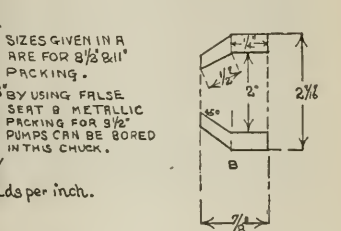 SIZES GIVEN IN A
ARE FOR 9½ & 11"
PACKING.
BY USING FALSE
SEAT B METALLIC
PACKING FOR 9½"
PUMPS CAN BE BORED
IN THIS CHUCK.
ds per inch.
½"
½"
2"
45°
B
⅞"